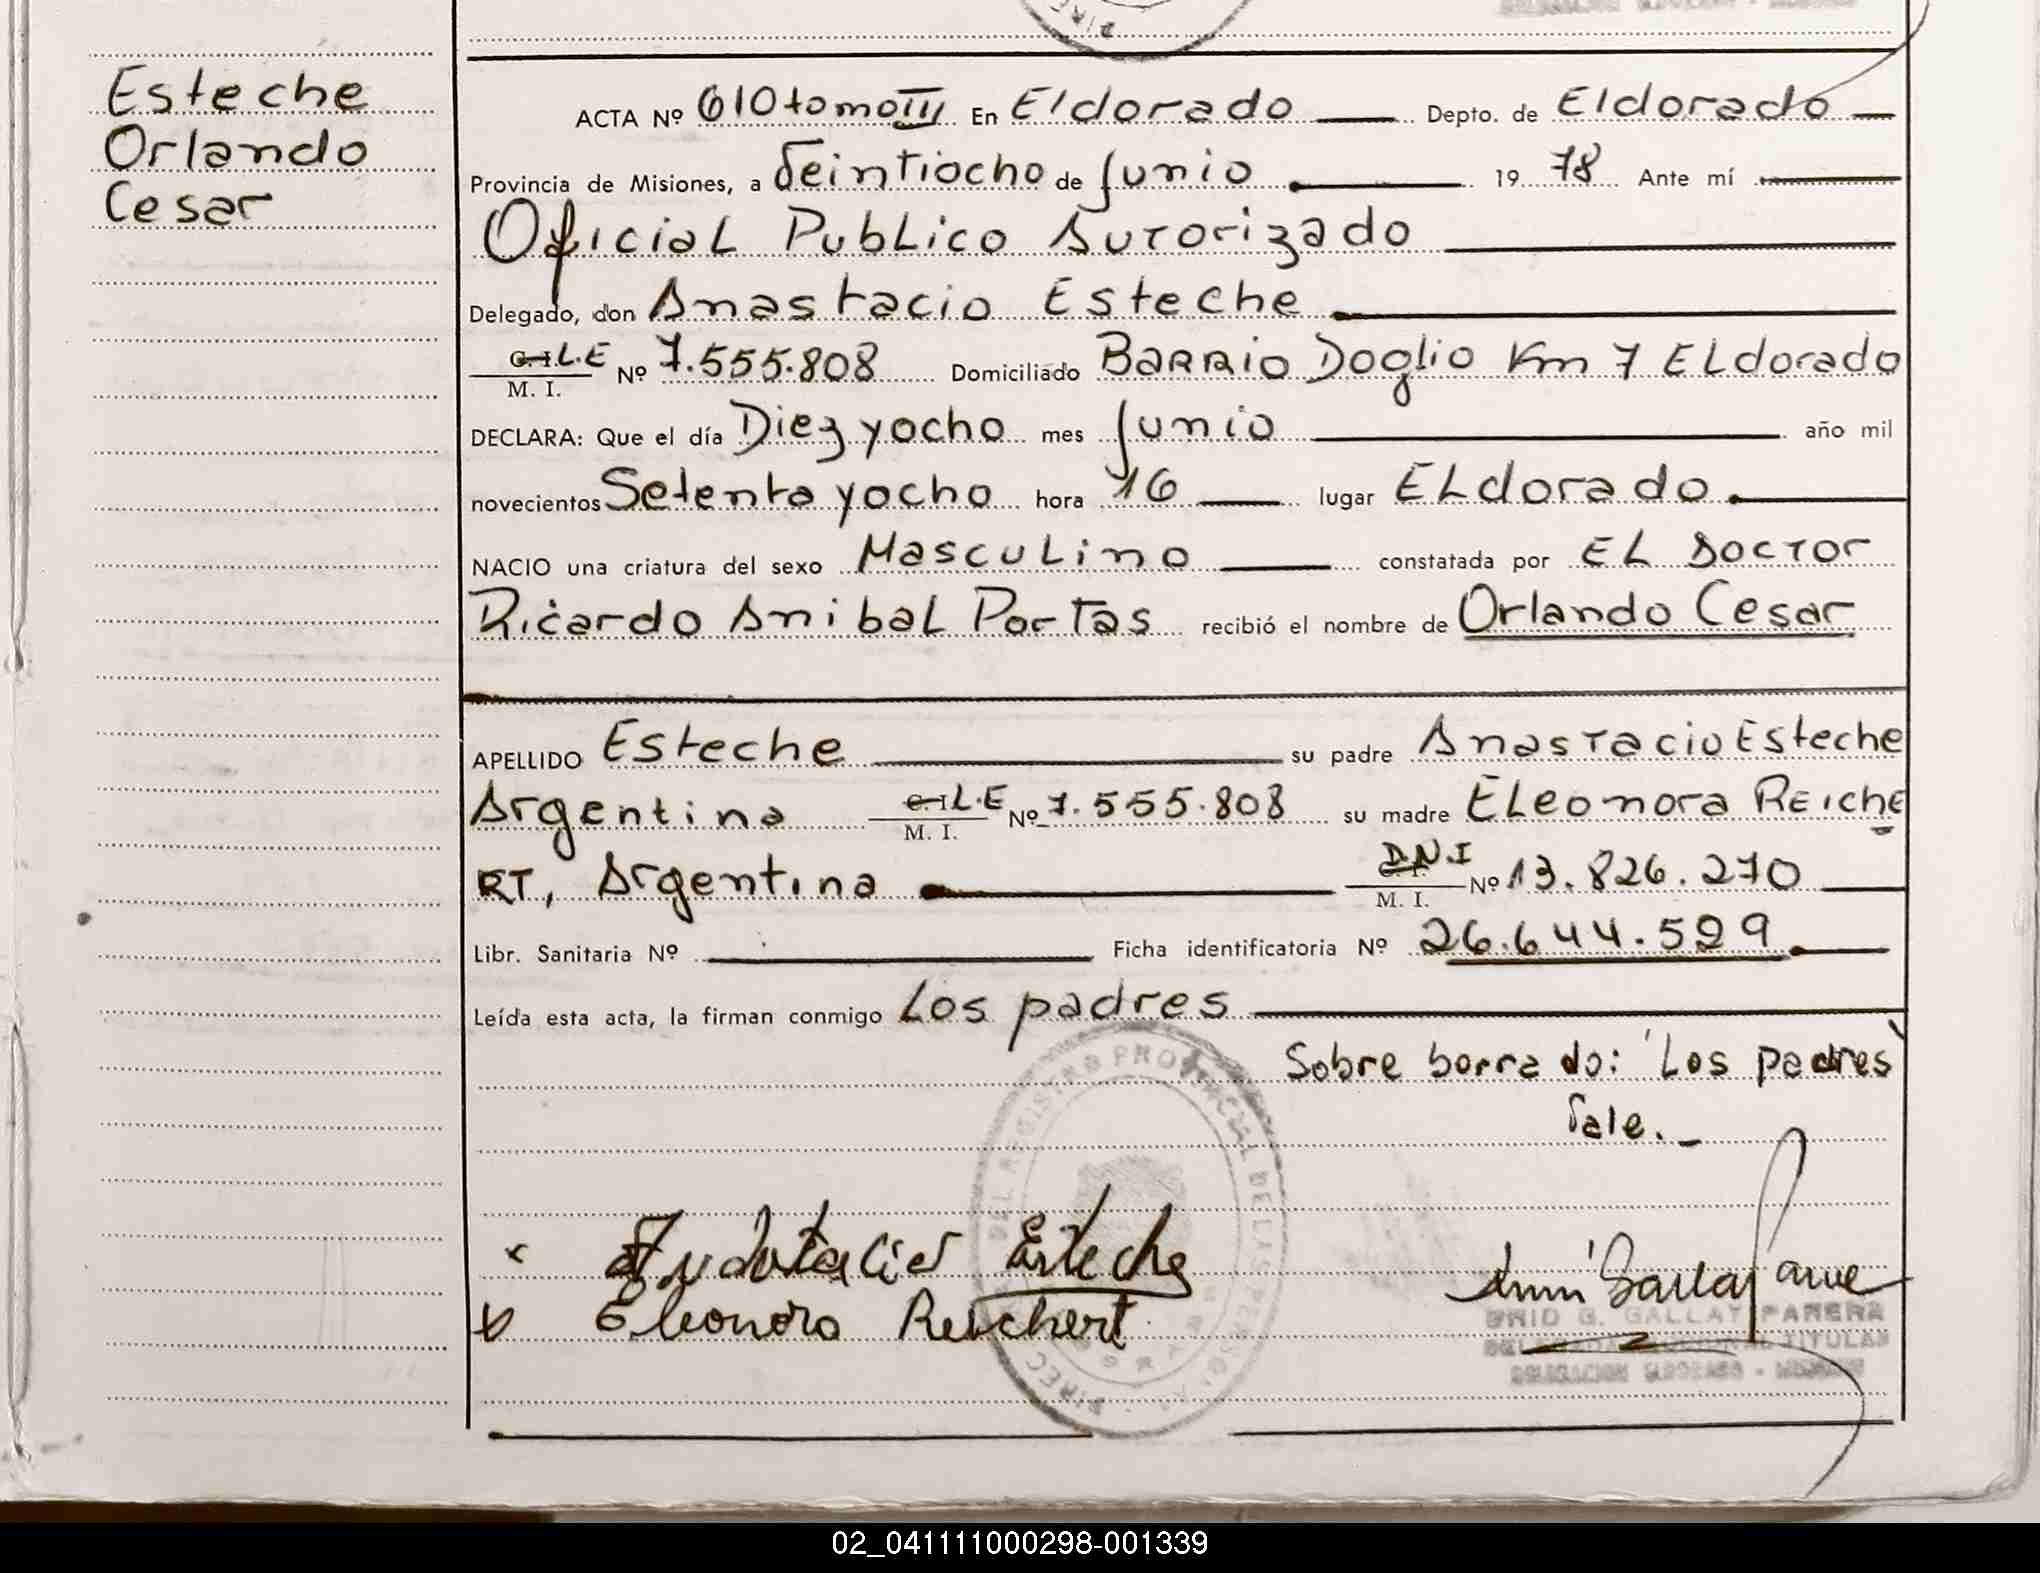 Esteche
Orlando
Cesar
ACTA Nº 610 tomo III En Eldorado Depto. de Eldorado
Provincia de Misiones, a Veintiocho de Junio 19 78 Ante mí
Oficial Publico Autorizado
Delegado, don Anastacio Esteche
C.I. L.E Nº 7.555.808 Domiciliado Barrio Doglio Km 7 Eldorado
M. I.
DECLARA: Que el día Diez y ocho mes Junio año mil
novecientos Setenta y ocho hora 16 lugar Eldorado
NACIO una criatura del sexo Masculino constatada por El Doctor
Ricardo Anibal Portas recibió el nombre de Orlando Cesar
APELLIDO Esteche su padre Anastacio Esteche
Argentina C.I. L.E Nº 7.555.808 su madre Eleonora Reiche
M. I.
RT, Argentina D.N.I Nº 13.826.270
M. I.
Libr. Sanitaria Nº Ficha identificatoria Nº 26.644.529
Leída esta acta, la firman conmigo Los padres
Sobre borrado: "Los padres"
Vale.
Anastacio Esteche
Eleonora Reichert
GALLAY PARERA
TITULAR
DELEGACION ELDORADO - MISIONES
02_041111000298-001339